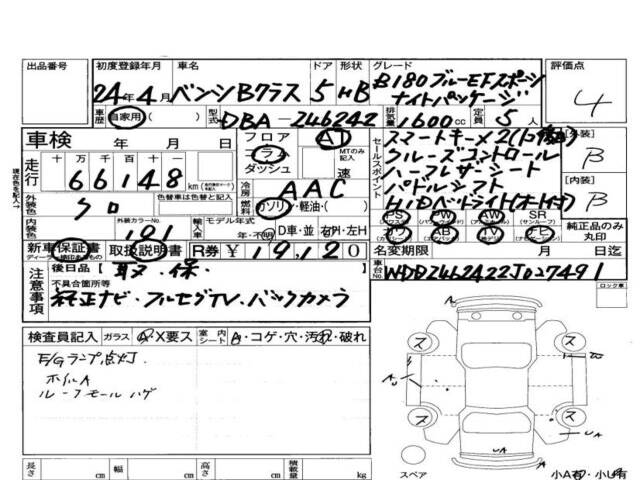 出品番号 初度登録年月 車名 ドア 形状 グレード 評価点
24年4月 ベンツBクラス 5 HB B180ブルーEFスポーツ
ナイトパッケージ 4
車歴 自家用( ) 型式 DBA-246242 排気量 1600cc 定員 5人
車検 年 月 日 フロア AT セールスポイント スマートキー×2
コラム MTのみ記入 クルーズコントロール [外装] B
走行 十 万 千 百 十 一 ダッシュ 速 ハーフレザーシート
66148 km 冷房 AAC パドルシフト [内装] B
外装色 クロ 色替車は色替と記入 燃料 ガソリン・軽油・( ) HIDベッドライト(オート付)
PS PW AW SR
内装色 外装カラーNo. 191 輸入車 モデル年式 年・不明 D車・並 右H・左H カワ AB TV 純正品のみ丸印
新車保証書 取扱説明書 R券 ¥19,120 名変期限 月 日迄
注意事項 後日品【 取・保・ 車台No. WDD2462422J027491
不具合箇所等
純正ナビ・フルセグTV・バックカメラ ロック車
検査員記入 ガラス A・X要ス 室内シート A・コゲ・穴・汚れ・破れ
E/Gランプ点灯.
ホイルA
ルーフモールハゲ
A
ス ス
A
ス ス
UA
UA
長さ cm 幅 cm 高さ cm 積載量 kg スペア 小A有・小U有
現在色を記入→